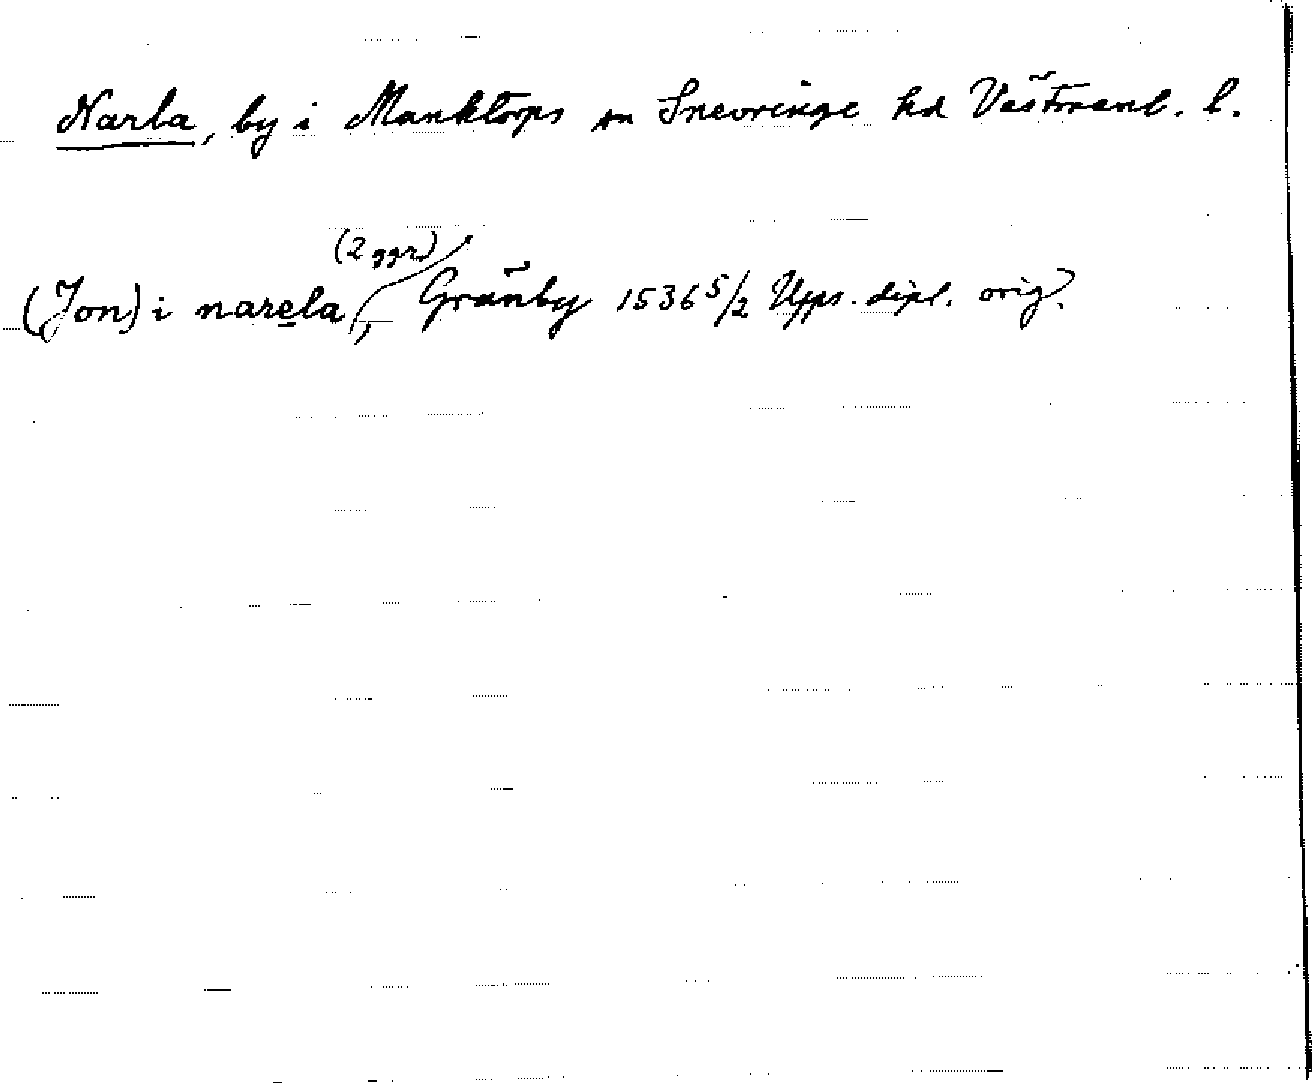 Narla, by i Munktorps sn Snevringe hd Västmanl. l.
(Jon) i narela (2 ggr), Gränby 1536 5/2 Upps. dipl. orig.